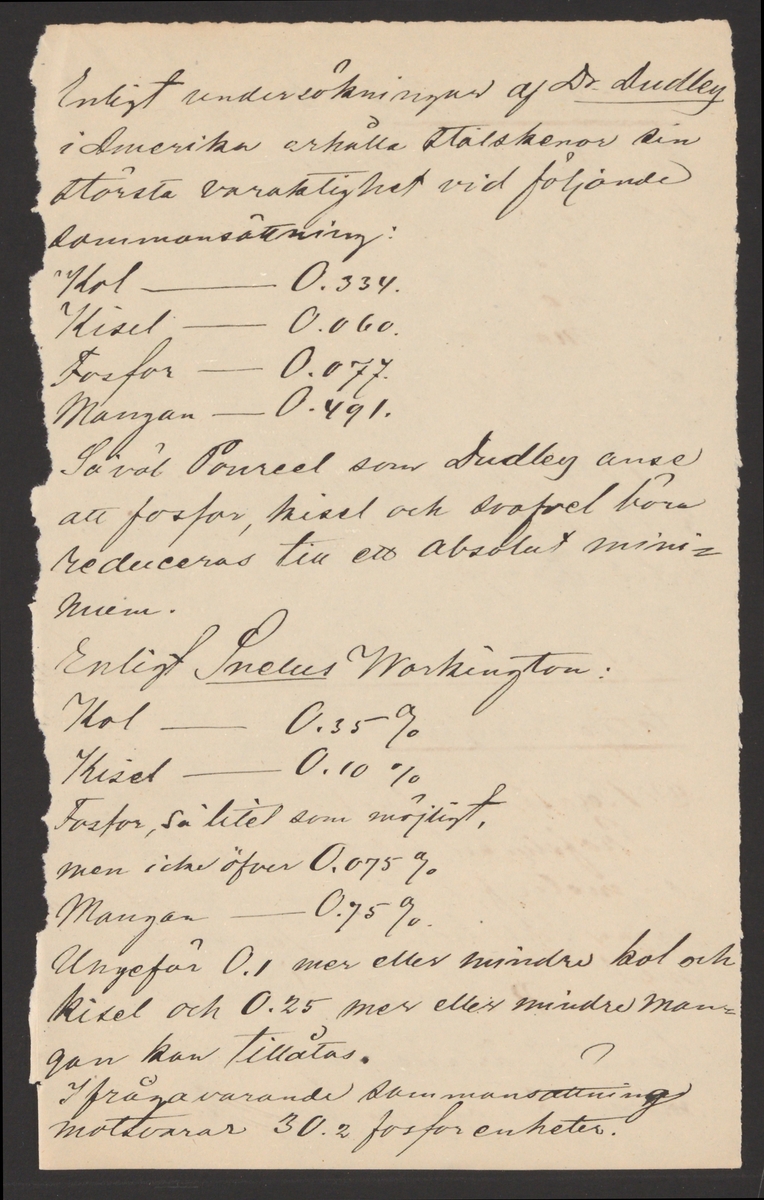 Enligt undersökningar af Dr. Dudley
i Amerika erhålla stålskenor sin
största varaktighet vid följande
sammansättning:
Kol — 0.334.
Kisel — 0.060.
Fosfor — 0.077.
Mangan — 0.491.
Såväl Pourcel som Dudley anse
att fosfor, kisel och svafvel böra
reduceras till ett absolut mini=
mum.
Enligt Snelus Workington:
Kol — 0.35 %
Kisel — 0.10 %
Fosfor, så litet som möjligt,
men icke öfver 0.075 %
Mangan — 0.75 %.
Ungefär 0.1 mer eller mindre kol och
kisel och 0.25 mer eller mindre man=
gan kan tillåtas.
Ifrågavarande sammansättning
motsvarar 30.2 fosforenheter.